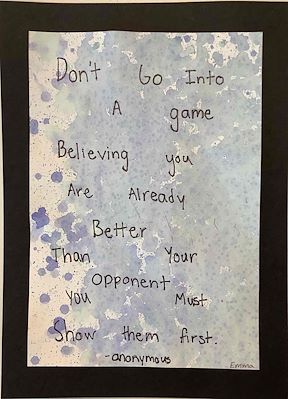 Don't Go Into
A game
Believing you
Are Already
Better
Than Your
Opponent
You Must
Show them first.
-anonymous
Emma